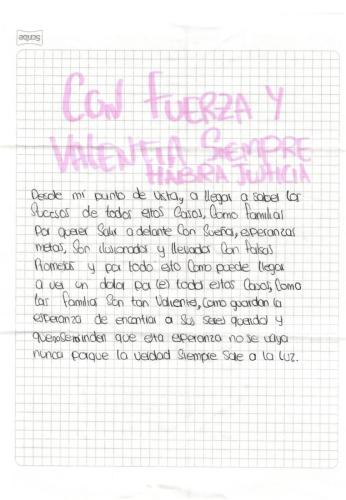 Scribe
CON FUERZA Y
VALENTIA SIEMPRE
HABRA JUTICIA
Desde mi punto de vista, a llegar a saber los
sucesos de todos estos casos, como familias
por querer salir a delante con sueña, esperanzas
metas, son ilusionados y llevados con falsas
Promesas y por todo esto como puede llegar
a ver un dolor po(e) todos estos casos, como
las familia son tan valientes, como guardan la
esperanza de encontrar a sus seres querido y
que no se rinden que esta esperanza no se vaya
nunca porque la verdad siempre sale a la luz.